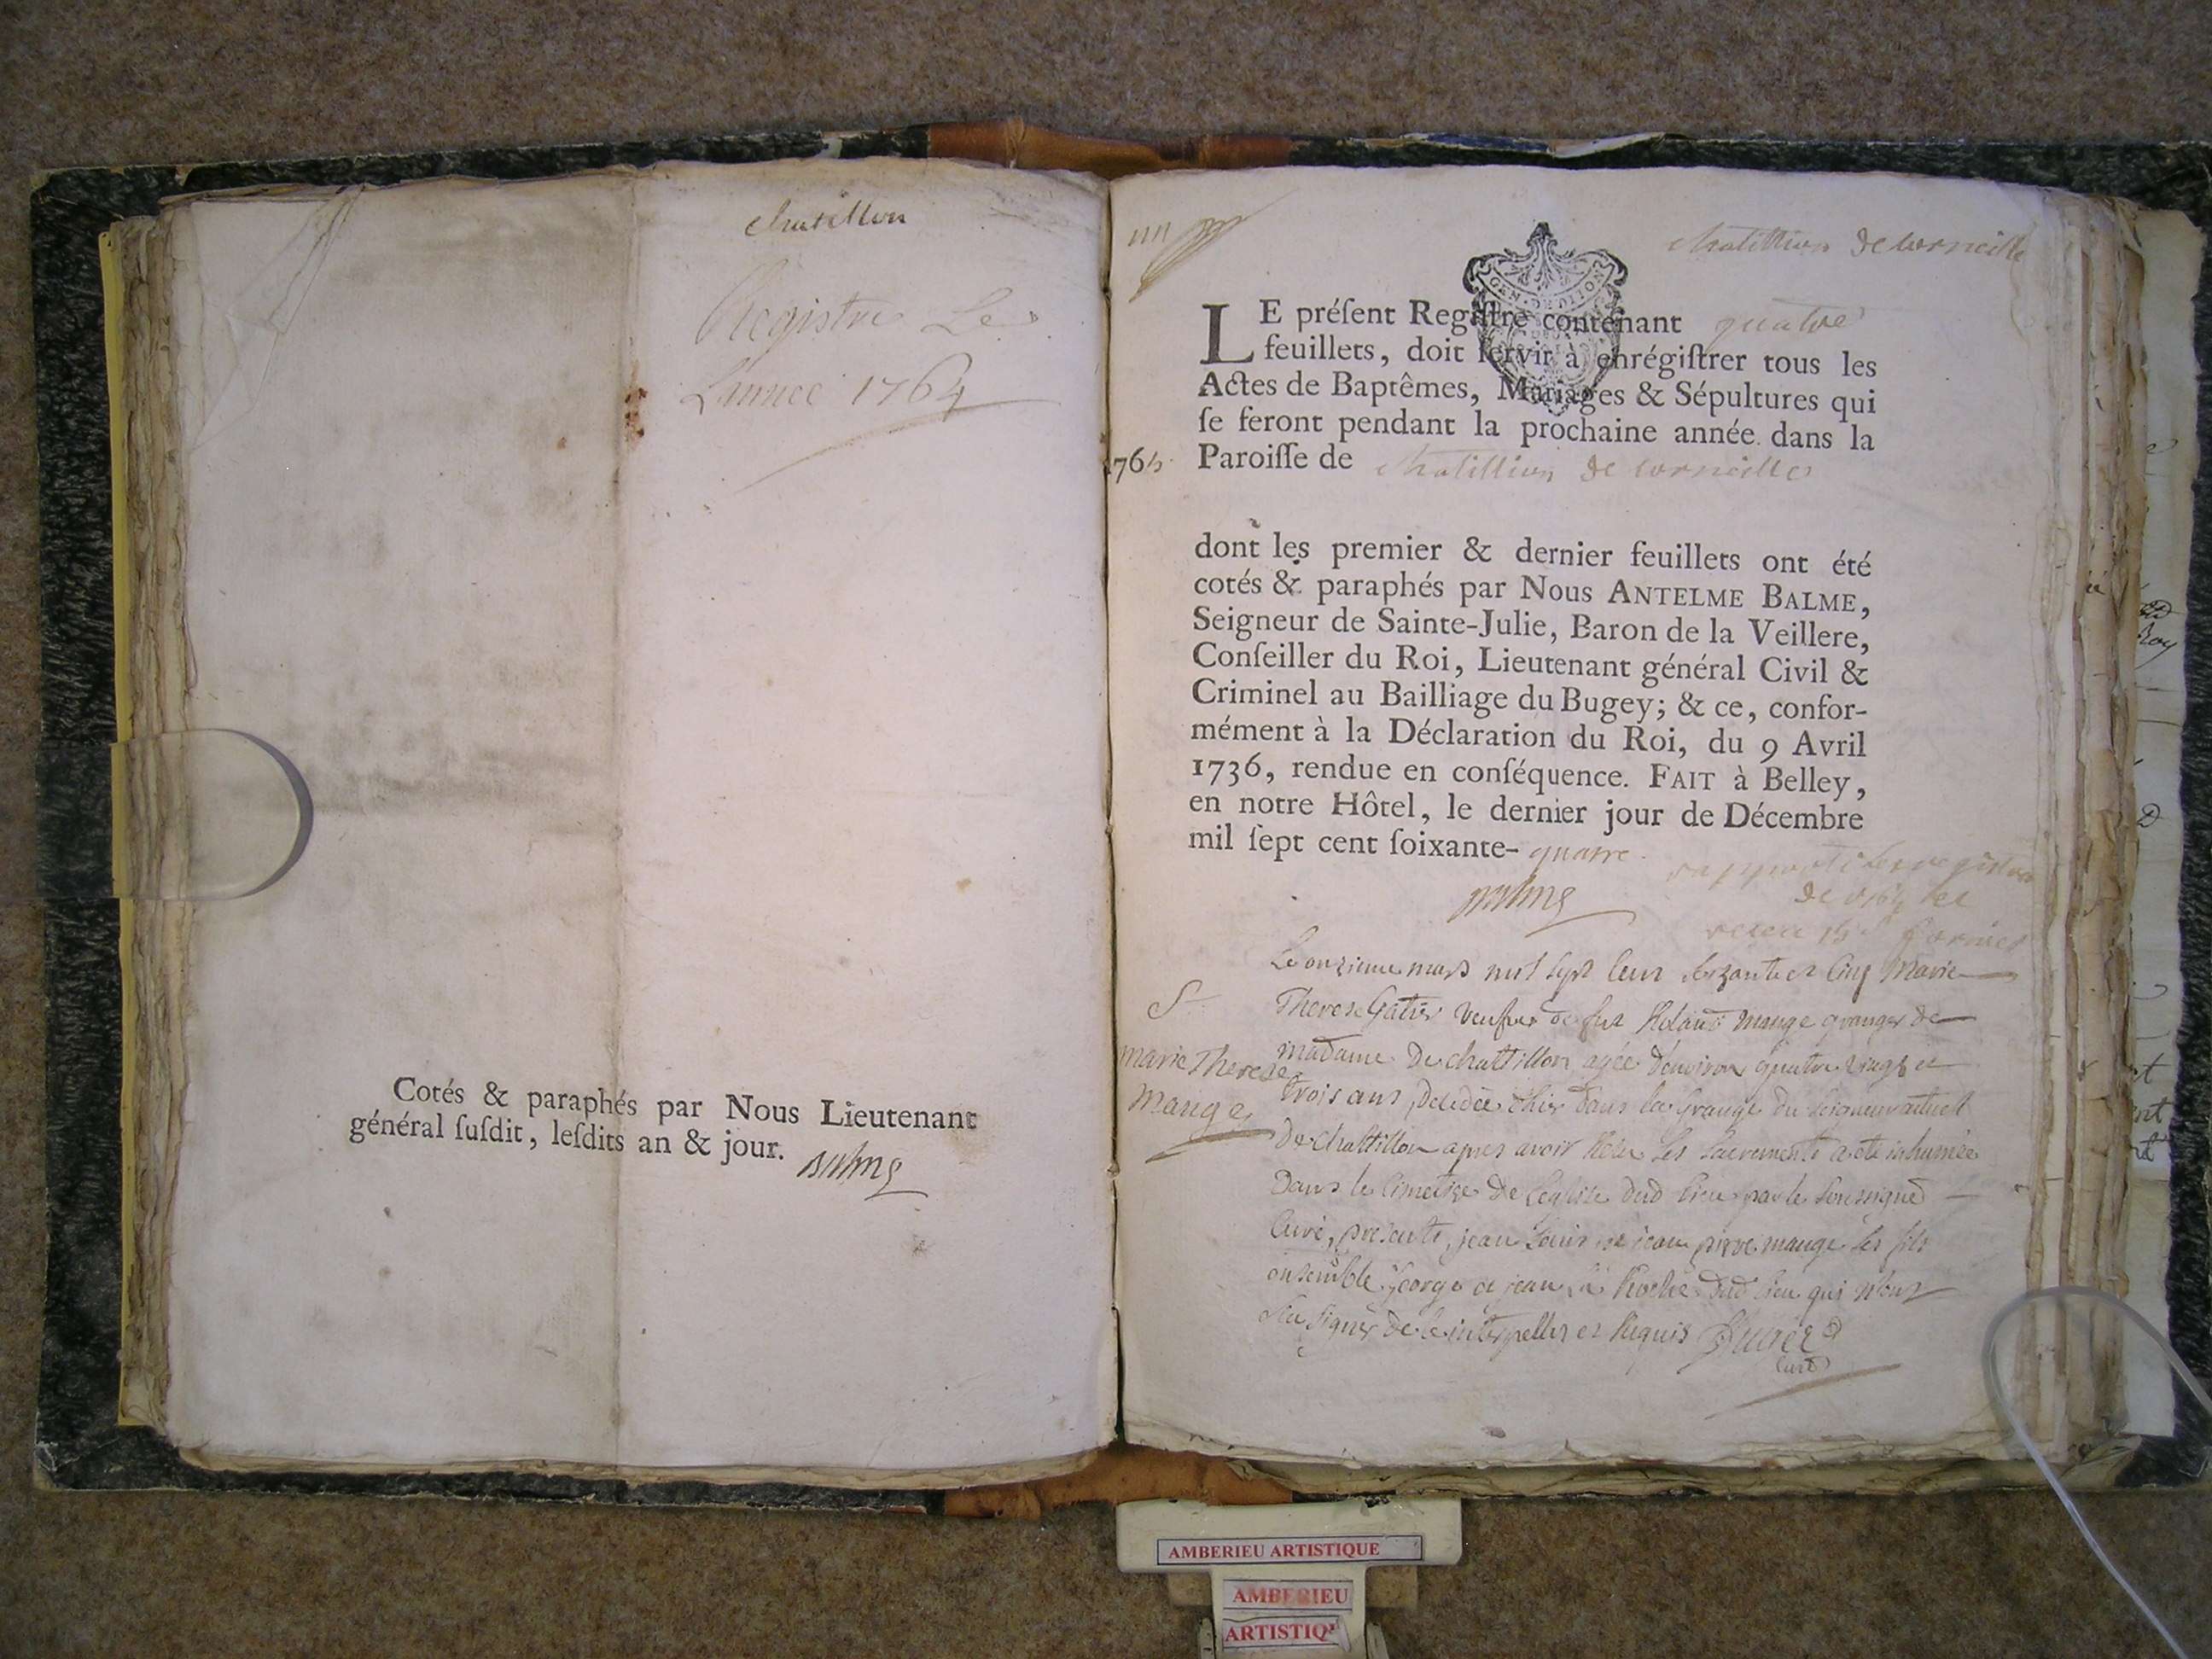 chatillon
Registre De
L'année 1764
Cotés & paraphés par Nous Lieutenant
général ſuſdit, leſdits an & jour.
Balme
chatillion de corneille
GEN. DE DIJON
LE préſent Regiſtre contenant quatre
feuillets, doit ſervir à enrégiſtrer tous les
Actes de Baptêmes, Mariages & Sépultures qui
ſe feront pendant la prochaine année dans la
Paroiſſe de chatillion de corneille
1765
dont les premier & dernier feuillets ont été
cotés & paraphés par Nous ANTELME BALME,
Seigneur de Sainte-Julie, Baron de la Veillere,
Conſeiller du Roi, Lieutenant général Civil &
Criminel au Bailliage du Bugey; & ce, confor-
mément à la Déclaration du Roi, du 9 Avril
1736, rendue en conſéquence. FAIT à Belley,
en notre Hôtel, le dernier jour de Décembre
mil ſept cent ſoixante-quatre.
Balme
rapporté le registre
de 1764
Le onzieme mars mil sept cent soixante et cinq Marie
S
Marie Therese
Mange
Therese Gatier veufve de fut Roland Mange granger de
madame De chattillon agée d'environ quatre vingt et
trois ans, décedée hier dans la Grange du seigneur actuel
De chattillon apres avoir Recu les sacrements a été inhumée
Dans le cimetiere De l'eglise dud lieu par le soussigné
Curé, presents, jean Louis et jean pierre mange ses fils
ensemble George et jean La Roche dud lieu qui n'ont
sçu signer de ce interpellés et Requis
curé
AMBERIEU ARTISTIQUE
AMBERIEU
ARTISTIQ